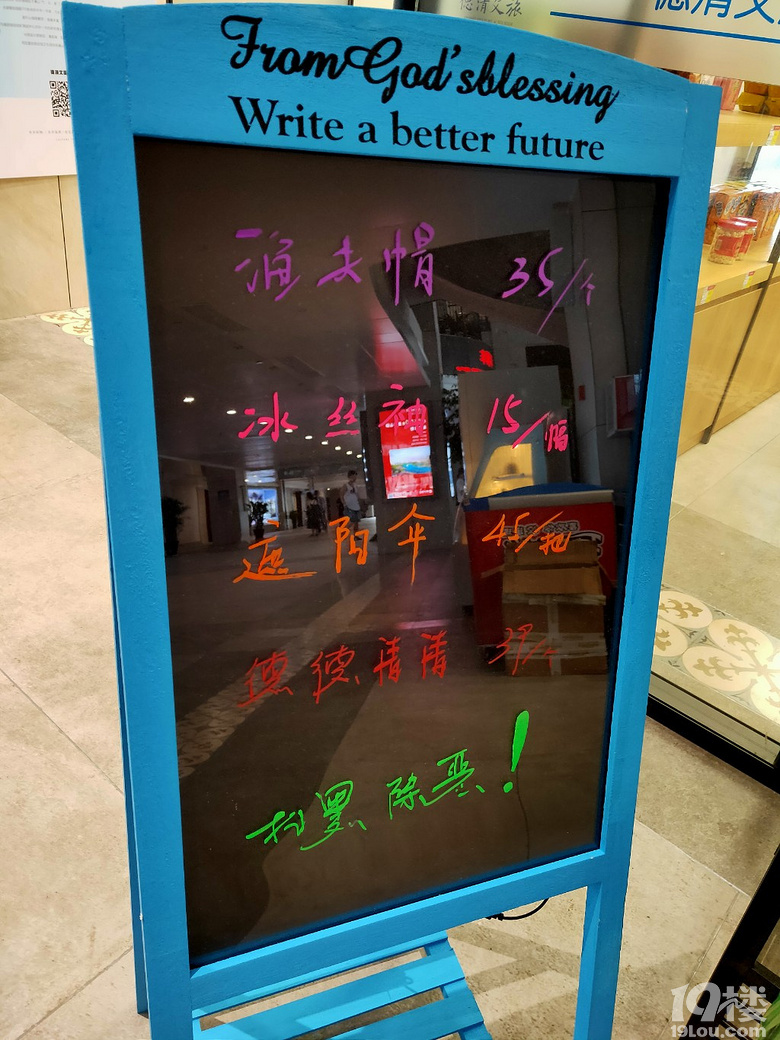 德清文旅
德清文旅
From God'sblessing
Write a better future
渔夫帽 35/个
冰丝袖 15/幅
遮阳伞 45/把
德德清清 39/个
扫黑除恶!
19楼
19lou.com